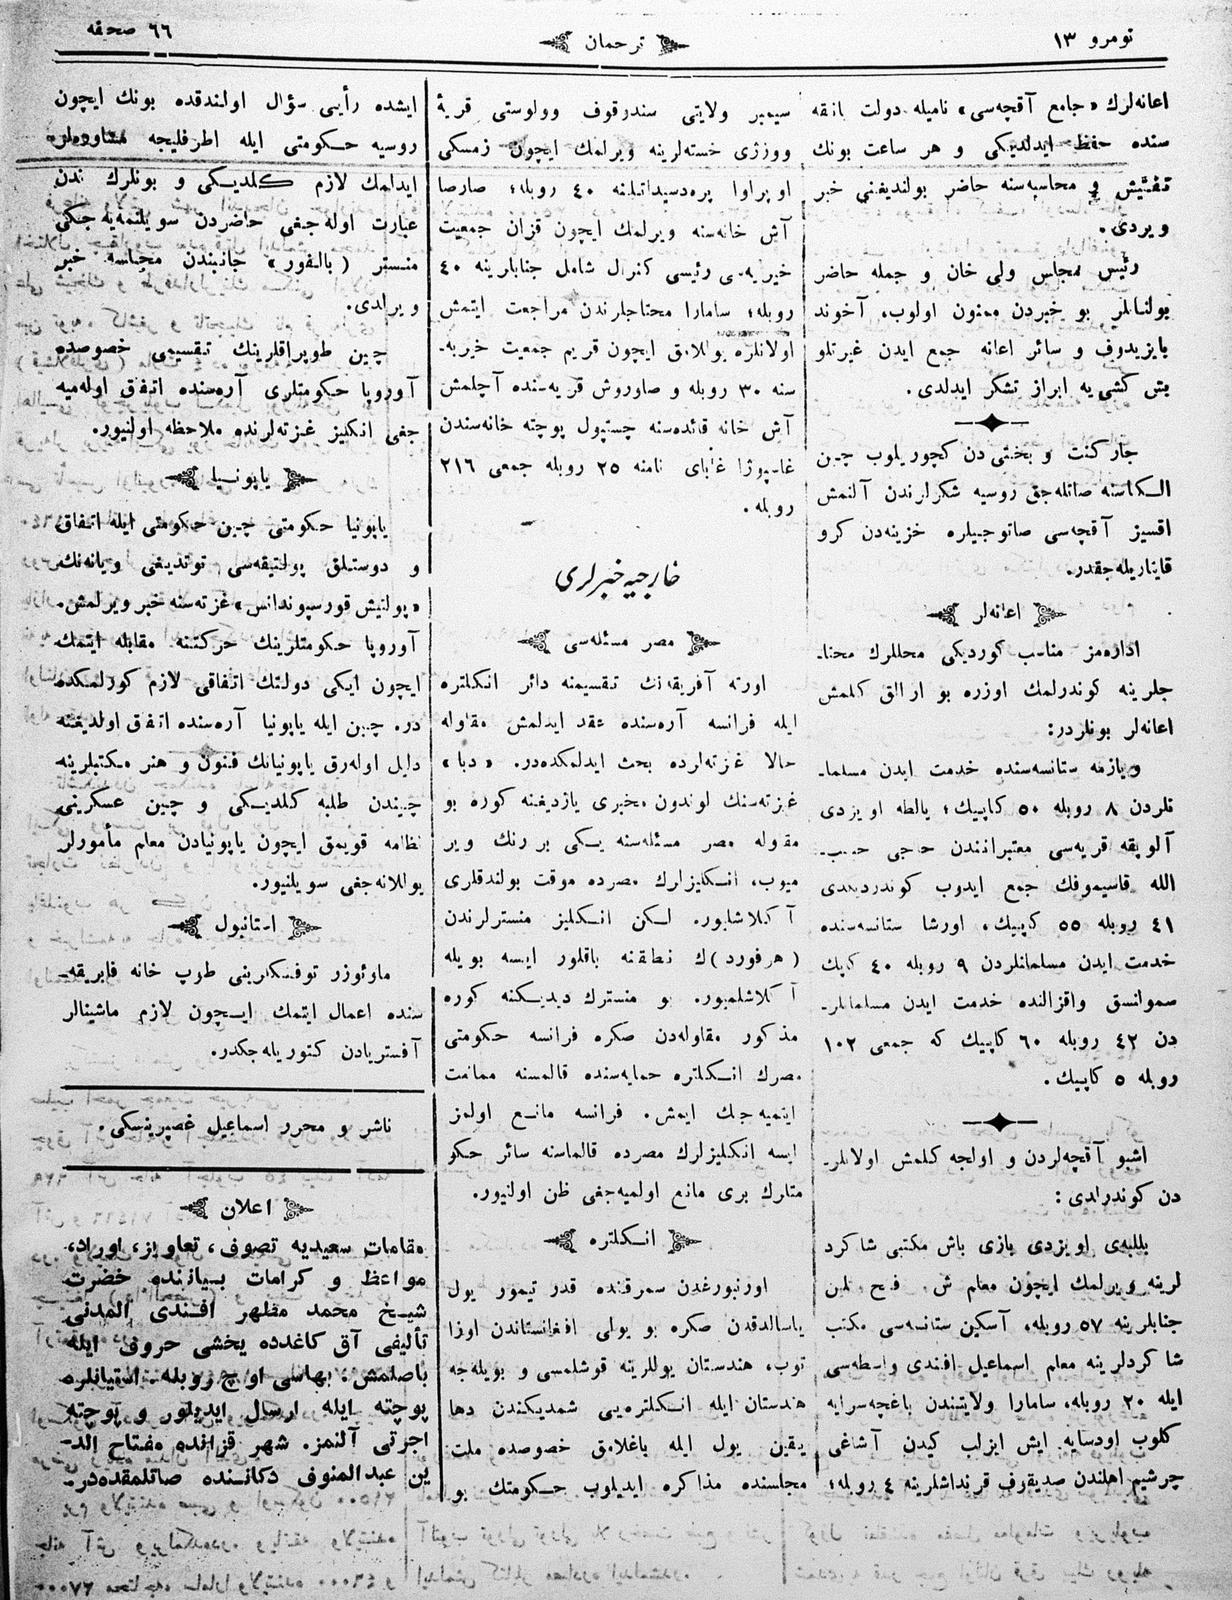 نومرو ١٣
ترجمان
٦٦ صحيفه
اعانه‌لرك «جامع آقچه‌سى» ناميله دولت بانقه
سنده حفظ ايدلديكى و هر ساعت بونك
تفتيش و محاسبه‌سنه حاضر بولنديغنى خبر
ويردى.
رئيس مجلس ولى خان و جمله حاضر
بولنانلر بو خبردن ممنون اولوب، آخوند
بايزيدوف و سائر اعانه جمع ايدن غيرتلو
بش كشى يه ابراز تشكر ايدلدى.
جاركنت و بختى دن كچوريلوب چين
الكاسنه صاتله‌جق روسيه شكرلرندن آلنمش
اقسيز آقچه‌سى صاتوجيلره خزينه‌دن كرو
قايتاريله‌جقدر.
اعانه‌لر
اداره‌مز مناسب كورديكى محللرك محتا-
جلرينه كوندرلمك اوزره بو ارالق كلمش
اعانه‌لر بونلردر:
ويازمه ستانسه‌سنده خدمت ايدن مسلما-
نلردن ٨ روبله ٥٠ كاپيك؛ يالطه اويزدى
آلوپقه قريه‌سى معتبرانندن حاجى حبيب-
الله قاسيموفك جمع ايدوب كوندرديكى
٤١ روبله ٥٥ كاپيك، اورشا ستانسه‌سنده
خدمت ايدن مسلمانلردن ٩ روبله ٤٠ كاپيك
سموانسق واقزالنده خدمت ايدن مسلمانلر-
دن ٤٢ روبله ٦٠ كاپيك كه جمعى ١٠٢
روبله ٥ كاپيك.
اشبو آقچه‌لردن و اولجه كلمش اولانلر-
دن كوندرلدى:
بللبه‌ى اويزدى يازى باش مكتبى شاكرد
لرينه ويرلمك ايچون معلم ش. فيح لمن
جنابلرينه ٥٧ روبله، آسكين ستانه‌سى مكتب
شاكردلرينه معلم اسماعيل افندى واسطه‌سى
ايله ٢٠ روبله، سامارا ولايتندن باغچه‌سرايه
كلوب اودسايه ايش ايزلب كيدن آشاغى
چرشيم اهلندن صديقرف قرنداشلرينه ٤ روبله؛
سيمبر ولايتى سندرقوف وولوستى قريۀ
ووزژى خسته‌لرينه ويرلمك ايچون زمسكى
اوپراوا پره‌دسيداتلنه ٤٠ روبله؛ صارصا
آش خانه‌سنه ويرلمك ايچون قزان جمعيت
خيريه‌ى رئيسى كنرال شامل جنابارينه ٤٠
روبله؛ سامارا محتاجلرندن مراجعت ايتمش
اولانلره يوللامق ايچون قريم جمعيت خيريه-
سنه ٣٠ روبله و صاوروش قريه‌سنده آچلمش
آش خانه قائده‌سنه چستپول پوچته خانه‌سندن
غاسپوژا غاباى نامنه ٢٥ روبله جمعى ٢١٦
روبله.
خارجيه خبرلرى
مصر مسئله‌سى
اورته آفريقه‌نك تقسيمنه دائر انكلتره
ايله فرانسه آره‌سنده عقد ايدلمش مقاوله
حالا غزته‌لرده بحث ايدلمكده‌در. «دبا»
غزته‌سنك لوندون مخبرى يازديغنه كوره بو
مقوله مصر مسئله‌سنه يكى بر رنك وير
ميوب، انكليزلرك مصرده موقت بولندقلرى
آكلاشليور. لكن انكليز منسترلرندن
(هرفورد)ك نطقنه باقلور ايسه بويله
آكلاشلميور. بو منسترك ديديكنه كوره
مذكور مقاوله‌دن صكره فرانسه حكومتى
مصرك انكلتره حمايه‌سنده قالمسنه ممانعت
ايتميه‌جك ايمش. فرانسه مانع اولمز
ايسه انكليزلرك مصرده قالماسنه سائر حكو
متلرك برى مانع اولميه‌جغى ظن اولنيور.
انكلتره
اورنبورغدن سمرقنده قدر تيمور يول
ياسالدقدن صكره بو يولى افغانستاندن اوزا
توب، هندستان يوللرينه قوشلمسى و بويله‌جه
هندستان ايله انكلتره‌يى شمديكندن دها
يقين يول ايله باغلامق خصوصده ملت
مجلسنده مذاكره ايديلوب حكومتك بو
ايشده رأيى سؤال اولندقده بونك ايچون
روسيه حكومتى ايله اطرفليجه مشاوره‌لر
ايدلمك لازم كلديكى و بونلرك ندن
عبارت اوله‌جغى حاضردن سويلنمه‌يه‌جكى
منستر (بالفور) جانبندن مجلسه خبر
ويرلدى.
چين طوپراقلرينك تقسيمى خصوصده
آوروپا حكومتلرى آره‌سنده اتفاق اوله‌ميه
جغى انكليز غزته‌لرنده ملاحظه اولنيور.
ياپونيا
ياپونيا حكومتى چين حكومتى ايله اتفاق
و دوستلق پولتيقه‌سى توتديغى ويانه‌نك
«پولتيش قورسپوندانس» غزته‌سنه خبر ويرلمش.
آوروپا حكومتلرينك حركتنه مقابله ايتمك
ايچون ايكى دولتك اتفاقى لازم كورلمكده
در. چين ايله ياپونيا آره‌سنده اتفاق اولديغنه
دليل اوله‌رق ياپونيانك فنون و هنر مكتبلرينه
چيندن طلبه كلديكى و چين عسكرينى
نظامه قويمق ايچون ياپونيادن معلم مأمورلر
يوللانه‌جغى سويلنيور.
استانبول
ماوئوزر توفنكلرينى طوپ خانه فابريقه-
سنده اعمال ايتمك ايچون لازم ماشينالر
آفستريادن كتوريله‌جكدر.
ناشر و محرر اسماعيل غصپرينسكى.
اعلان
مقامات سعيديه تصوف، تعاويز، اوراد،
مواعظ و كرامات بيانده حضرت
شيخ محمد مظهر افندى المدنى
تأليفى آق كاغدده يخشى حروف ايله
باصلمش، بهاسى اوچ روبله. استيانلره
پوچته ايله ارسال ايديلور و پوچته
اجرتى آلنمز. شهر قزانده مفتاح الد-
ين عبدالمنوف دكاننده صاتلمقده‌در.